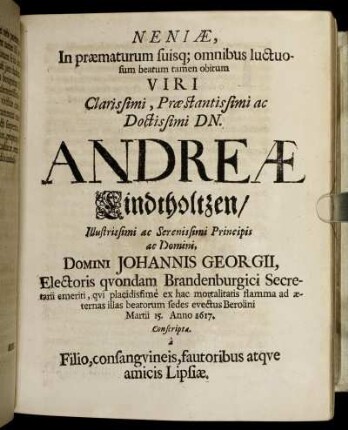 NENIÆ,
In præmaturum suisq; omnibus luctuo-
sum beatum tamen obitum
VIRI
Clarissimi, Præstantissimi ac
Doctissimi DN.
ANDREÆ
Lindtholtzen/
Illustrissimi ac Serenissimi Principis
ac Domini,
DOMINI JOHANNIS GEORGII,
Electoris qvondam Brandenburgici Secre-
tarii emeriti, qvi placidissimè ex hac mortalitatis flamma ad æ-
ternas illas beatorum sedes evectus Berolini
Martii 15. Anno 1617.
Conscriptæ.
à
Filio, consangvineis, fautoribus atqve
amicis Lipsiæ.